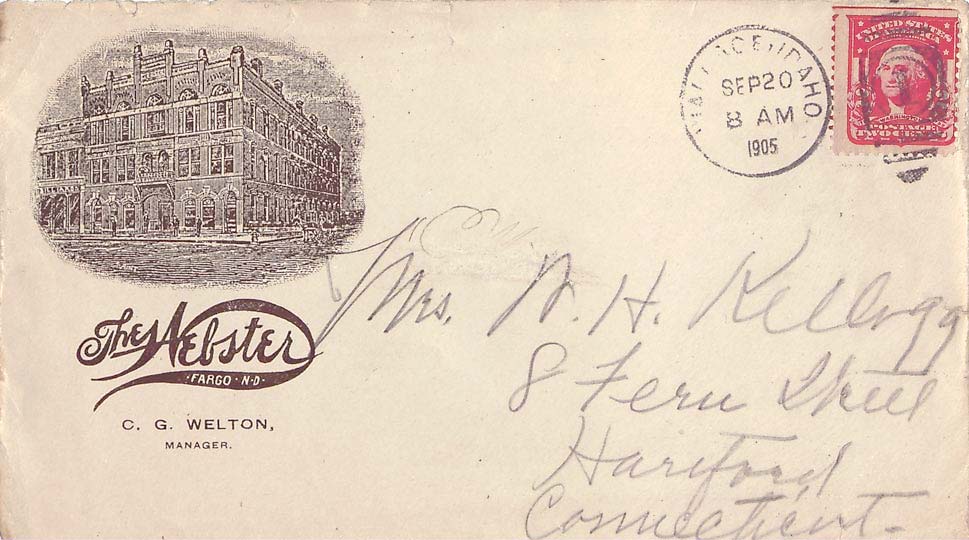 The Webster
FARGO · N·D·
C. G. WELTON,
MANAGER.
WALLACE, IDAHO
SEP 20
8 AM
1905
UNITED STATES
OF AMERICA
WASHINGTON
POSTAGE
TWO CENTS
Mrs. W. H. Kellogg
8 Fern Street
Hartford
Connecticut-